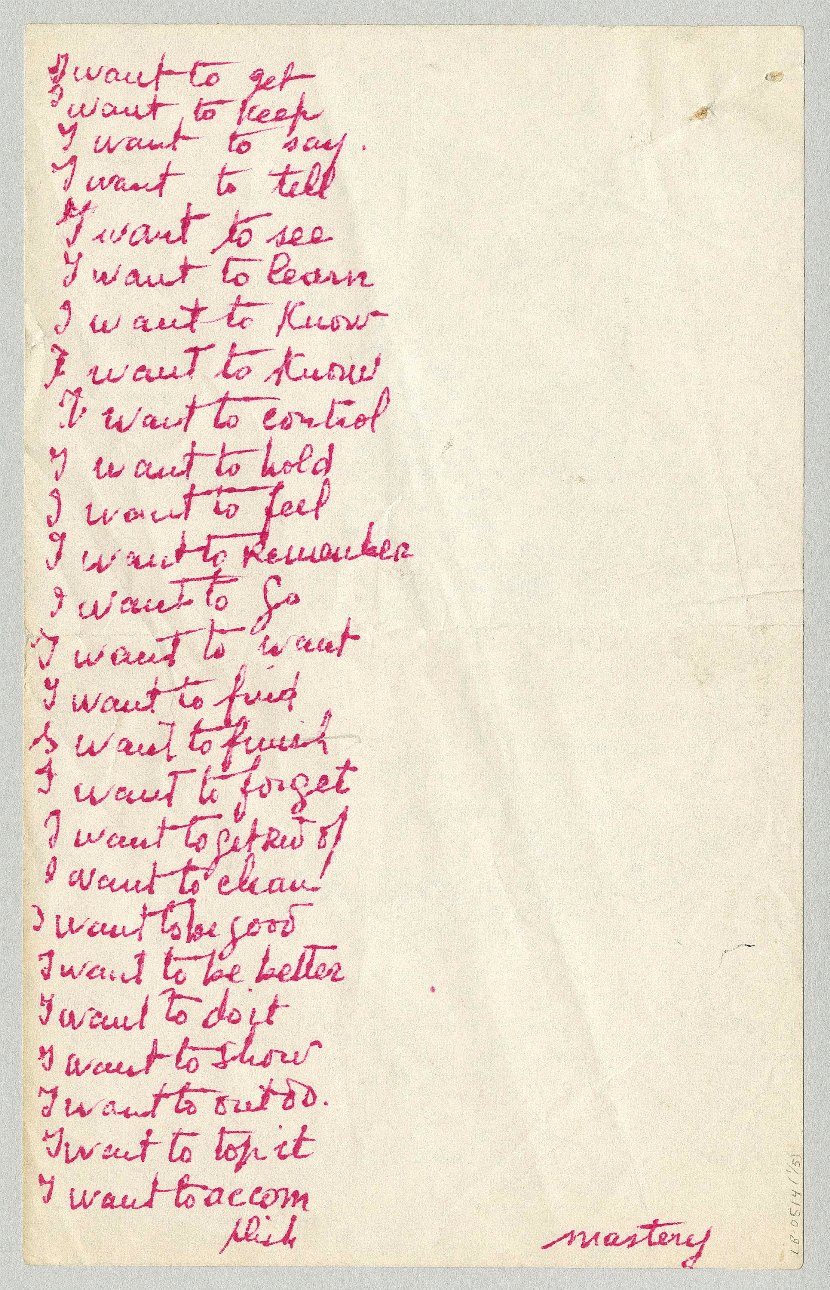 I want to get
I want to keep
I want to say.
I want to tell
I want to see
I want to learn
I want to Know
I want to Know
I want to control
I want to hold
I want to feel
I want to Remember
I want to Go
I want to want
I want to find
I want to finish
I want to forget
I want to get Rid of
I want to clean
I want to be good
I want to be better
I want to do it
I want to show
I want to out do.
I want to top it
I want to accom
plish
mastery